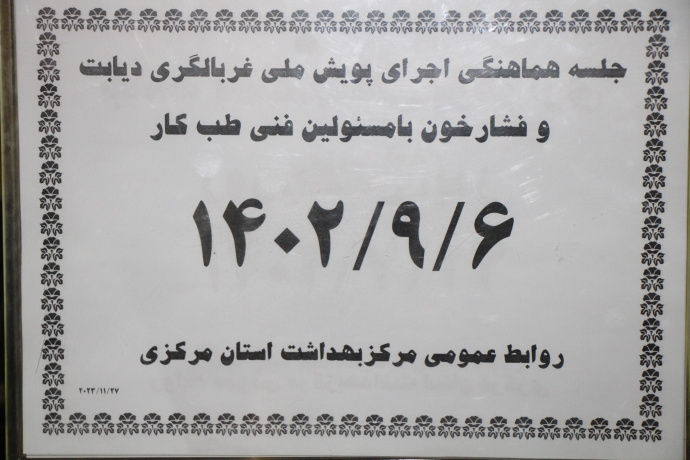 جلسه هماهنگی اجرای پویش ملی غربالگری دیابت
و فشارخون بامسئولین فنی طب کار
۱۴۰۲/۹/۶
روابط عمومی مرکزبهداشت استان مرکزی
۲۰۲۳/۱۱/۲۷